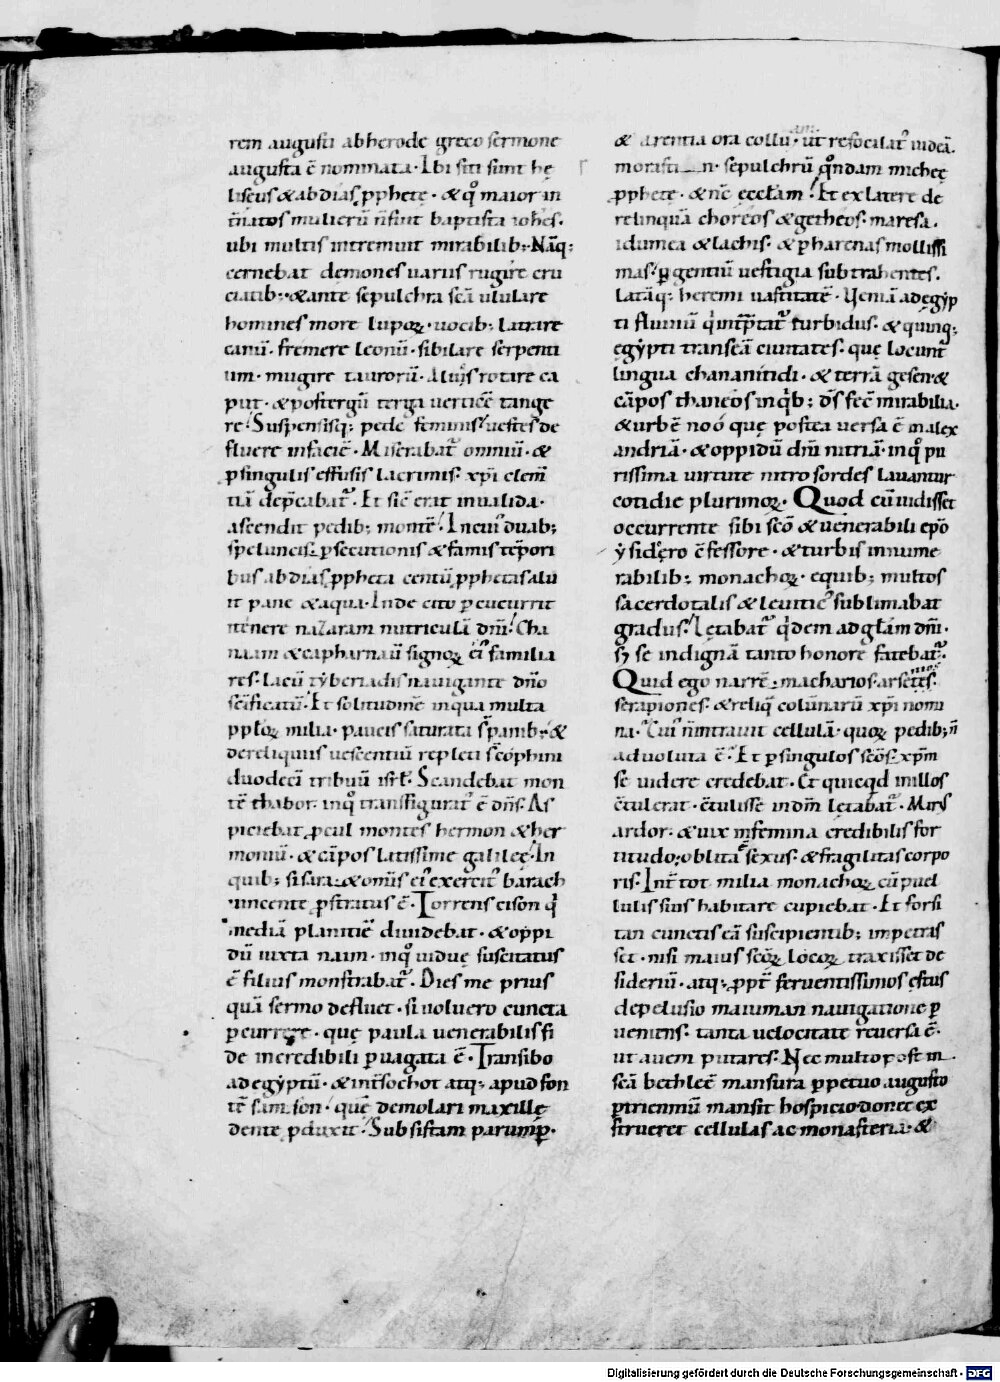 rem augusti ab herode greco sermone
augusta ē nominata · Ibi siti sunt he
liseus & abdias ꝓphetę · & qͦ maior in
t̄ natos mulierū ñ fuit baptista iohēs ·
ubi multis intremuit mirabilib; · Nāq;
cernebat demones uariis rugire cru
ciatib; · & ante sepulchra scā ululare
homines more lupoꝝ · uocib; latrare
canū · fremere leonū · sibilare serpenti
um · mugire taurorū · Alios rotare ca
put · & postergū terga uerticē tange
re · Suspensisq; pede feminis uestes de
fluere in faciē · Miserabat᷑ omniū · &
ꝑ singulis effusis lacrimis · xp̄i clem̄
tiā dep̄cabat᷑ · Et sic̄ erat inualida ·
ascendit pedib; montē · In cui᷒ duab;
speluncis · ꝑsecutionis & famis tēpori
bus abdias ꝓpheta centū ꝓphetas alu
it pane & aqua · Inde cito ꝑcucurrit
itenere nazaram nutriculā dn̄i · Cha
naam & capharnaū signoꝝ ei᷒ familia
res · lacū tyberiadis nauigante dn̄o
sc̄ificatū · Et solitudinē in qua multa
pploꝝ milia · paucis saturata s̄ panib; · &
de reliquiis uescentiū repleti sc̄ cophini
duodeci tribuū isrł · Scandebat mon
tē thabor · in qͦ transfigurat᷒ ē dn̄s · As
piciebat ꝓcul montes hermon & her
moniū · & cāpos latissime galileę · In
quib; sisara · & omīs ei᷒ exercit᷒ barach
uincente ꝓstratus ē · Torrens cison qͥ
mediā planitiē diuidebat · & oppi
dū iuxta naim · in qͦ uiduę suscitatus
ē filius monstrabat᷑ · Dies me prius
quā sermo defluet · si uoluero cuncta
ꝑcurrere · quę paula uenerabilis fi
de incredibili ꝑuagata ē · Transibo
ad egyptū · & inť sochot atq; apud fon
tē samson · quē de molari maxillę
dente ꝓduxit · Subsistam parumꝑ ·
& arentia ora collu · ut refocilat᷒ uideā ·
morasti n · sepulchrū qͦndam micheę
ꝓphetę · & nc̄ ęcclam · Et ex latere de
relinquā choreos & getheos · maresa ·
idumea & lachis · & ꝑ harenas mollissi
mas · ꝑ gentiū uestigia subtrahentes ·
Latāq; heremi uastitatē · Ueniā ad egyp
ti fluuiū qͥ int̄p̄tat᷑ turbidus · & quinq;
ęgypti transeā ciuitates · quę locunt᷑
lingua chananitidi · & terrā gesen · &
cāpos thaneos in qͥb; · dsͅ fec̄ mirabilia ·
& urbē no ó quę postea uersa ē in alex
andriā · & oppidū dn̄i nitriā · in qͦ pu
rissima uirtute nitro sordes lauantur
cotidie plurimoꝝ · Quod cū uidisset
occurrente sibi sc̄o & uenerabili ep̄o
ysidero c̄fessore · & turbis innume
rabilib; monachoꝝ · e quib; multos
sacerdotalis & leuitic᷒ sublimabat
gradus · Lętabat᷑ qͥdem ad głam dn̄i ·
sȝ se indignā tanto honore fatebat᷑ ·
Quid ego narrē · macharios · arsetes ·
serapiones · & reliq̄ colūnarū xp̄i nomi
na · Cui᷒ ñ intrauit cellulā · quoꝝ pedib; ñ
aduoluta ē · Et ꝑ singulos sc̄os · xp̄m
se uidere credebat · Et quicqͥd in illos
c̄tulerat · c̄tulisse in dn̄m lętabat᷑ · Mirus
ardor · & uix in femina credibilis for
titudo; oblita sexus · & fragilitas corpo
ris · Inť tot milia monachoꝝ cū puel
lulis suis habitare cupiebat · Et forsi
tan cunctis eā suscipientib; impetras
set · nisi maius sc̄oꝝ locoꝝ traxisset de
sideriū · atq; ꝓpť feruentissimos ęstus
de pelusio maiuman nauigatione ꝑ
ueniens · tanta uelocitate reuersa ē ·
ut auem putares · Nec multo post in
scā bethleē mansura ꝑpetuo augusto
ꝑ trienniū mansit hospicio donec ex
strueret cellulas ac monasteria · &
Digitalisierung gefördert durch die Deutsche Forschungsgemeinschaft · DFG